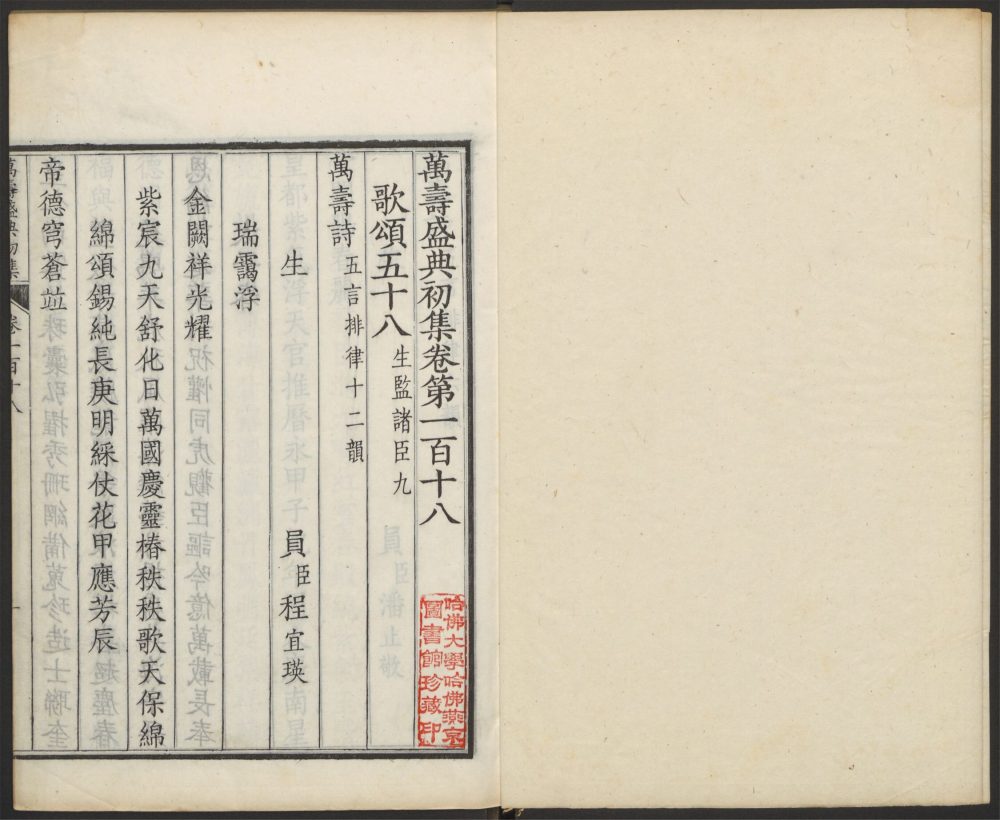 萬壽盛典初集卷第一百十八
歌頌五十八 生監諸臣九
萬壽詩 五言排律十二韻
生 員臣程宜瑛
瑞靄浮
金闕祥光耀
紫宸九天舒化日萬國慶靈椿秩秩歌天保綿
綿頌錫純長庚明綵仗花甲應芳辰
帝德穹蒼並
萬壽盛典初集 卷一百十八 一
哈佛大學哈佛燕京
圖書館珍藏印